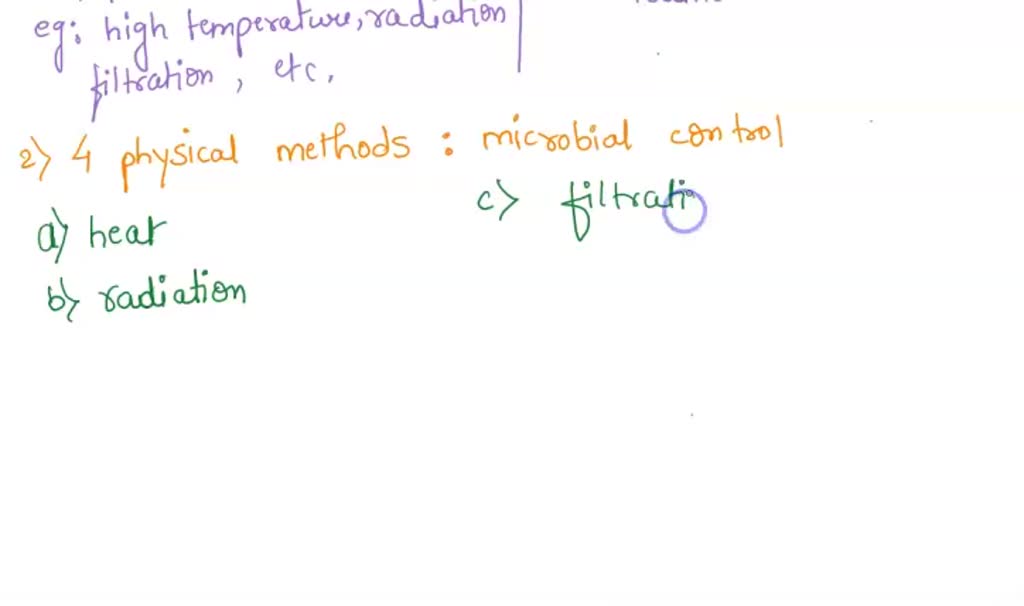 eg: high temperature, radiation
filtration, etc.
2) 4 physical methods : microbial control
a) heat
b) radiation
c) filtrati